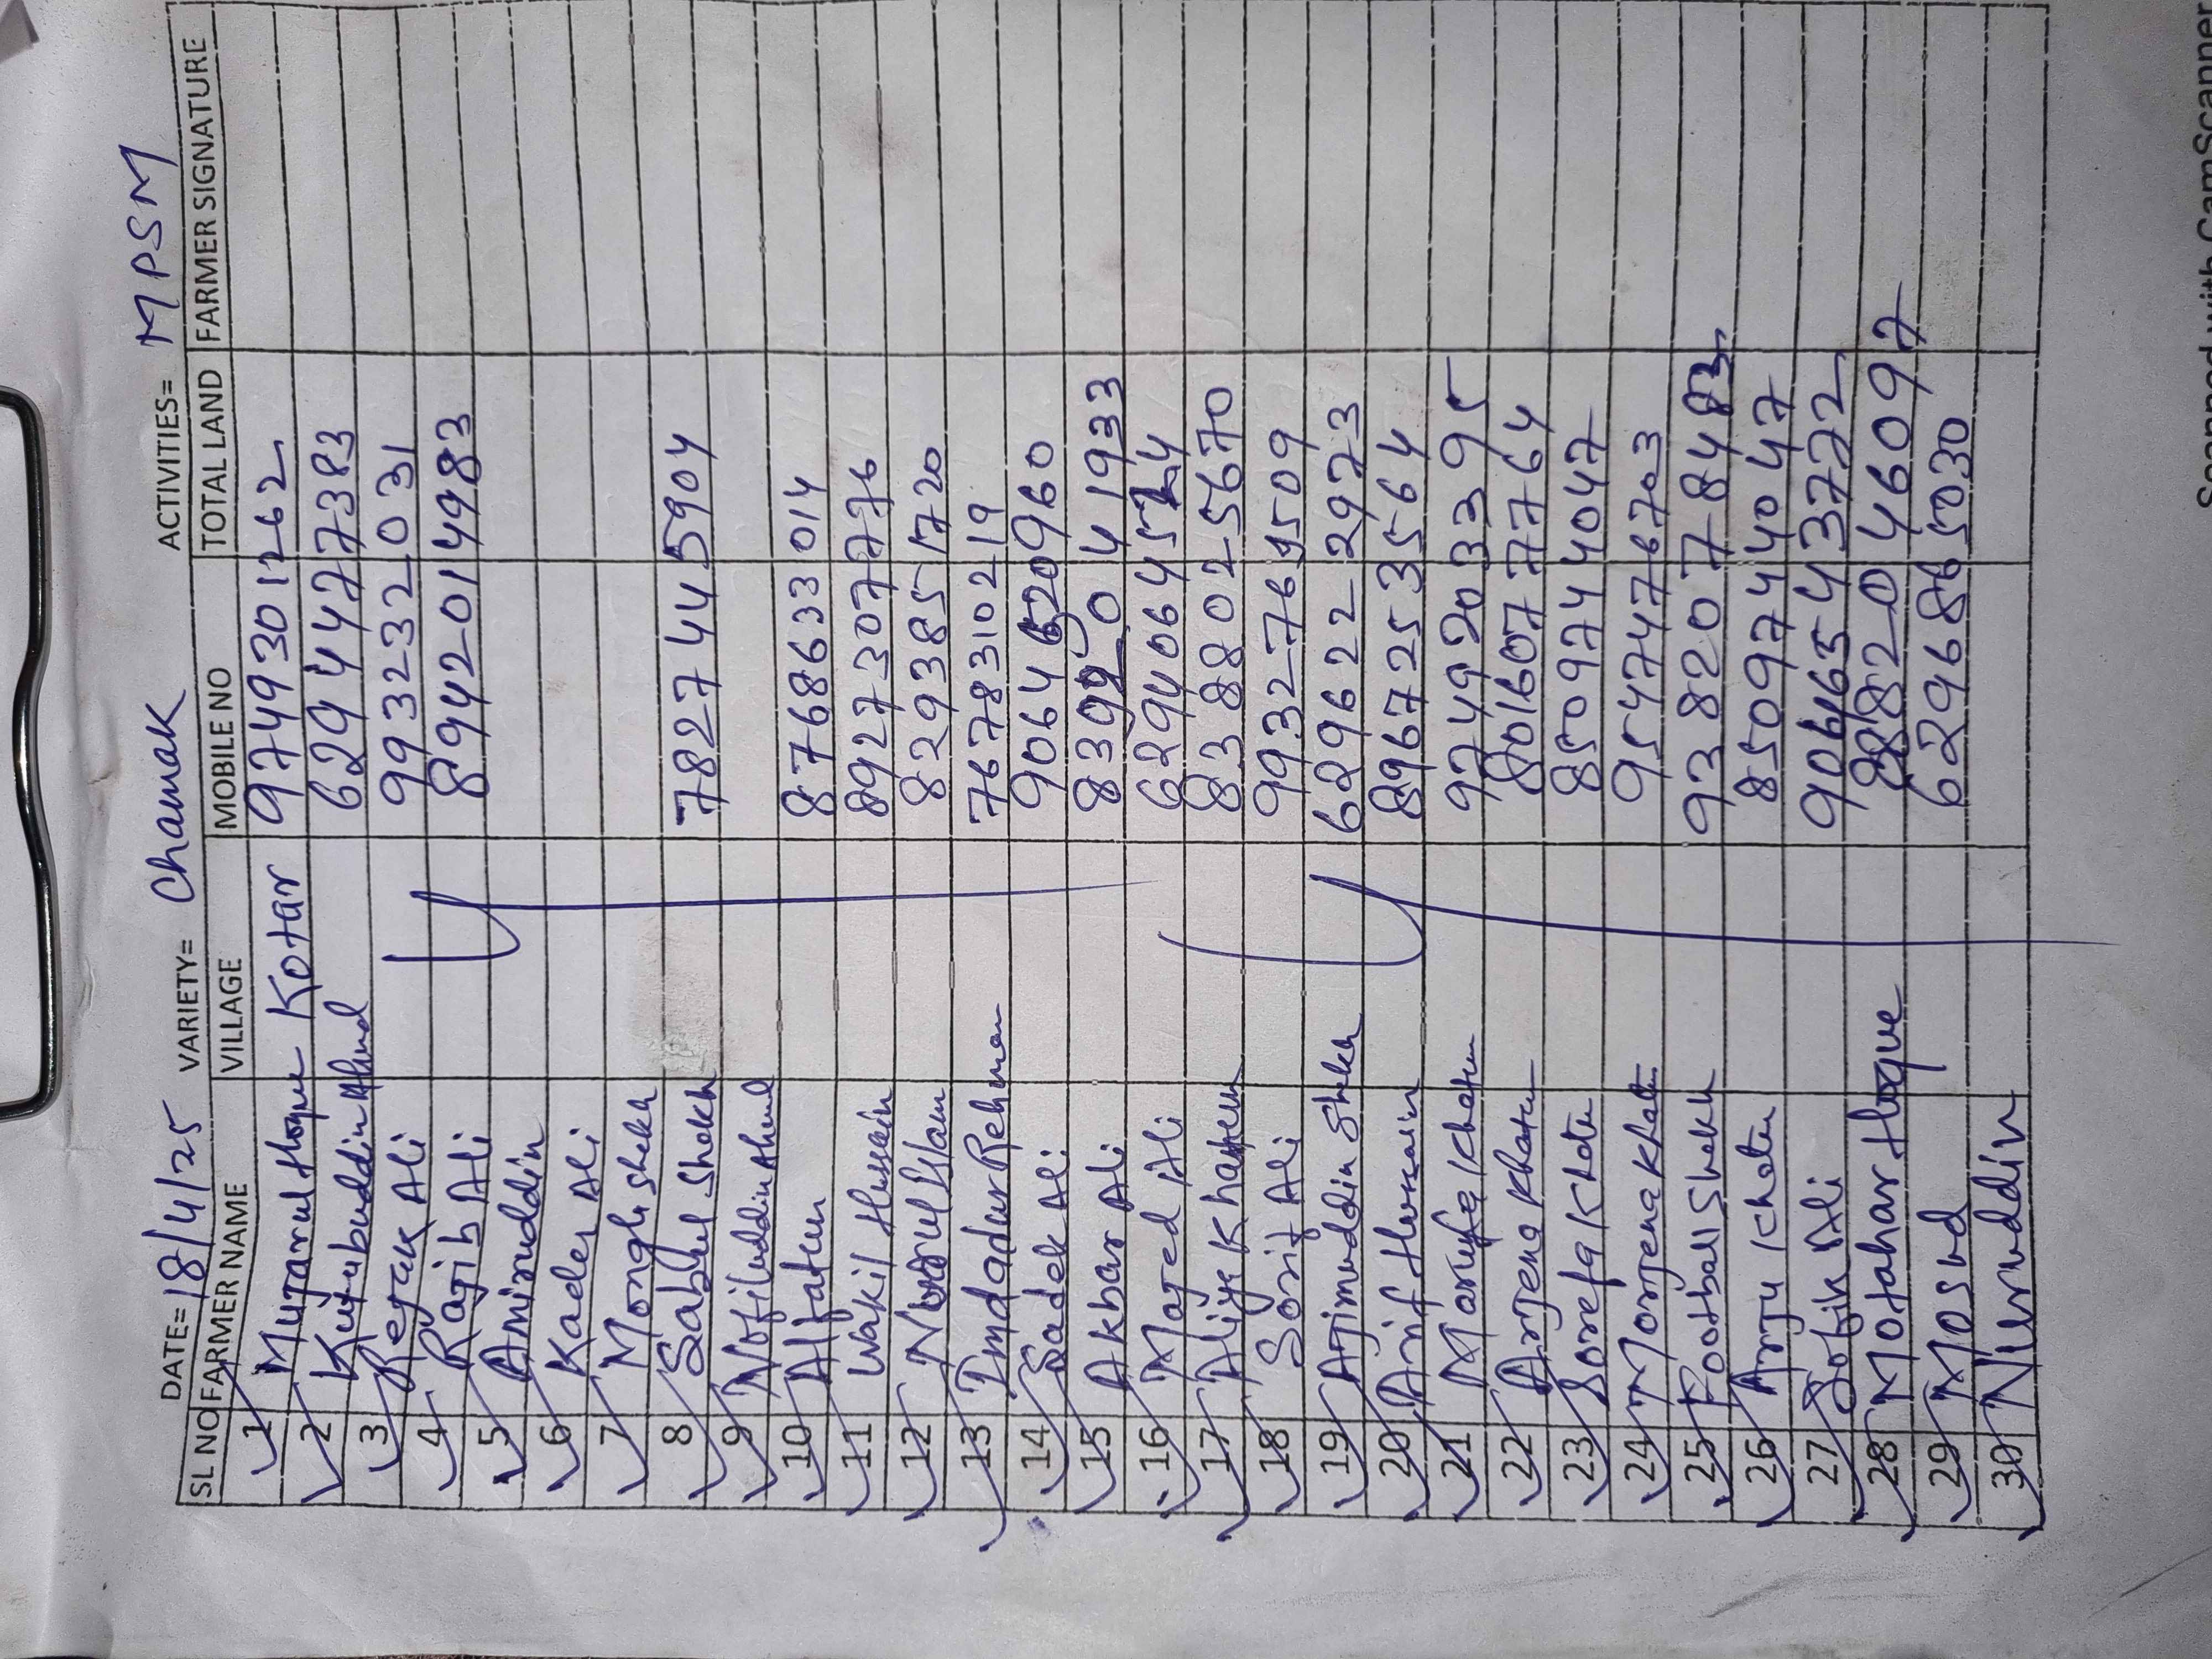 DATE= 18/4/25 VARIETY= Chamak ACTIVITIES= MPSM
SL NO FARMER NAME VILLAGE MOBILE NO TOTAL LAND FARMER SIGNATURE
1 Muzamul Hoque Kotar 9749301262
2 Kutubuddin Ahmed 6294427383
3 Rejak Ali 993232031
4 Rajib Ali 8942014983
5 Amiruddin
6 Kader Ali
7 Mongli Shekh
8 Sabbul Shekh 7827445904
9 Nofiluddin Ahmed
10 Aljatun 8768633014
11 Wakil Hussain 8927307776
12 Nurul Islam 8293851720
13 Imdadur Rehman 7678310219
14 Sadek Ali 9064520960
15 Akbar Ali 8399041933
16 Majed Ali 6294064524
17 Aliya Khatun 8388025670
18 Sorif Ali 9932769509
19 Ajimuddin Shekh 6296222973
20 Arif Hussain 8967253564
21 Marufa Khatun 9749203395
22 Arjena Khatun 8016077764
23 Sorefa Khatun 8509744047
24 Morjena Khatun 9547476703
25 Football Shekh 9382078483
26 Arju Khatun 8509744047
27 Sofik Ali 9066543772
28 Motahar Hoque 882046097
29 Mosud 6296865030
30 Nuruddin
Scanned with CamScanner